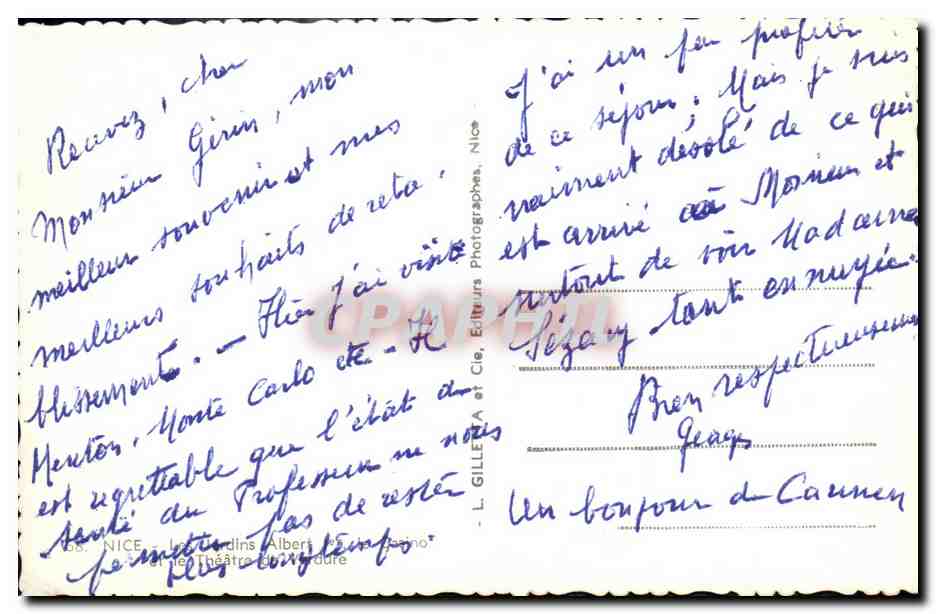 Recevez, cher
Monsieur Gérin, mon
meilleur souvenir et mes
meilleurs souhaits de réta-
blissement. - Hier j'ai visité
Menton, Monte Carlo etc - Il
est regrettable que l'état de
santé du Professeur ne nous
permette pas de rester
plus longtemps.
68. NICE - Les Jardins Albert 1er, le Casino
et le Théâtre de Verdure
- L. GILLETTA et Cie, Editeurs Photographes, Nice
CPARPHIL
J'ai un peu profiter
de ce séjour. Mais je suis
vraiment désolé de ce qui
est arrivé au Monsieur et
surtout de voir Madame
Sézary tant ennuyée.
Bien respectueusement
Georges
Un bonjour de Carmen